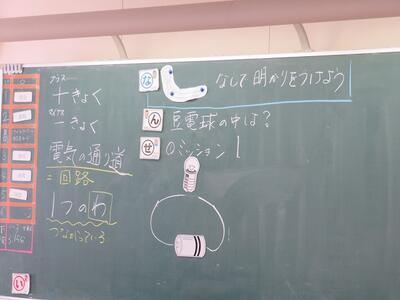 プラス
十きょく
マイナス
一きょく
電気の通り道
=回路
1つのわ
つながっている
な
なしで 明かりをつけよう
ん
豆電球の中は?
せ
○ミッション1
い